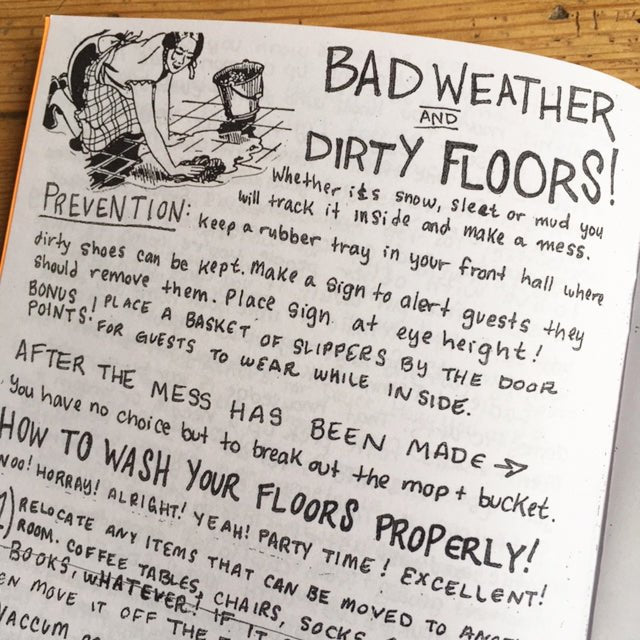 BAD WEATHER
AND
DIRTY FLOORS!
Whether its snow, sleet or mud you
will track it inside and make a mess.
PREVENTION: Keep a rubber tray in your front hall where
dirty shoes can be kept. Make a sign to alert guests they
should remove them. Place sign at eye height!
BONUS POINTS! PLACE A BASKET OF SLIPPERS BY THE DOOR
FOR GUESTS TO WEAR WHILE INSIDE.
AFTER THE MESS HAS BEEN MADE →
You have no choice but to break out the mop + bucket.
HOW TO WASH YOUR FLOORS PROPERLY!
WOO! HORRAY! ALRIGHT! YEAH! PARTY TIME! EXCELLENT!
1) RELOCATE ANY ITEMS THAT CAN BE MOVED TO
ROOM. COFFEE TABLES, CHAIRS, SOCKS,
BOOKS, WHATEVER! IF IT
MOVE IT OFF THE
VACCUM